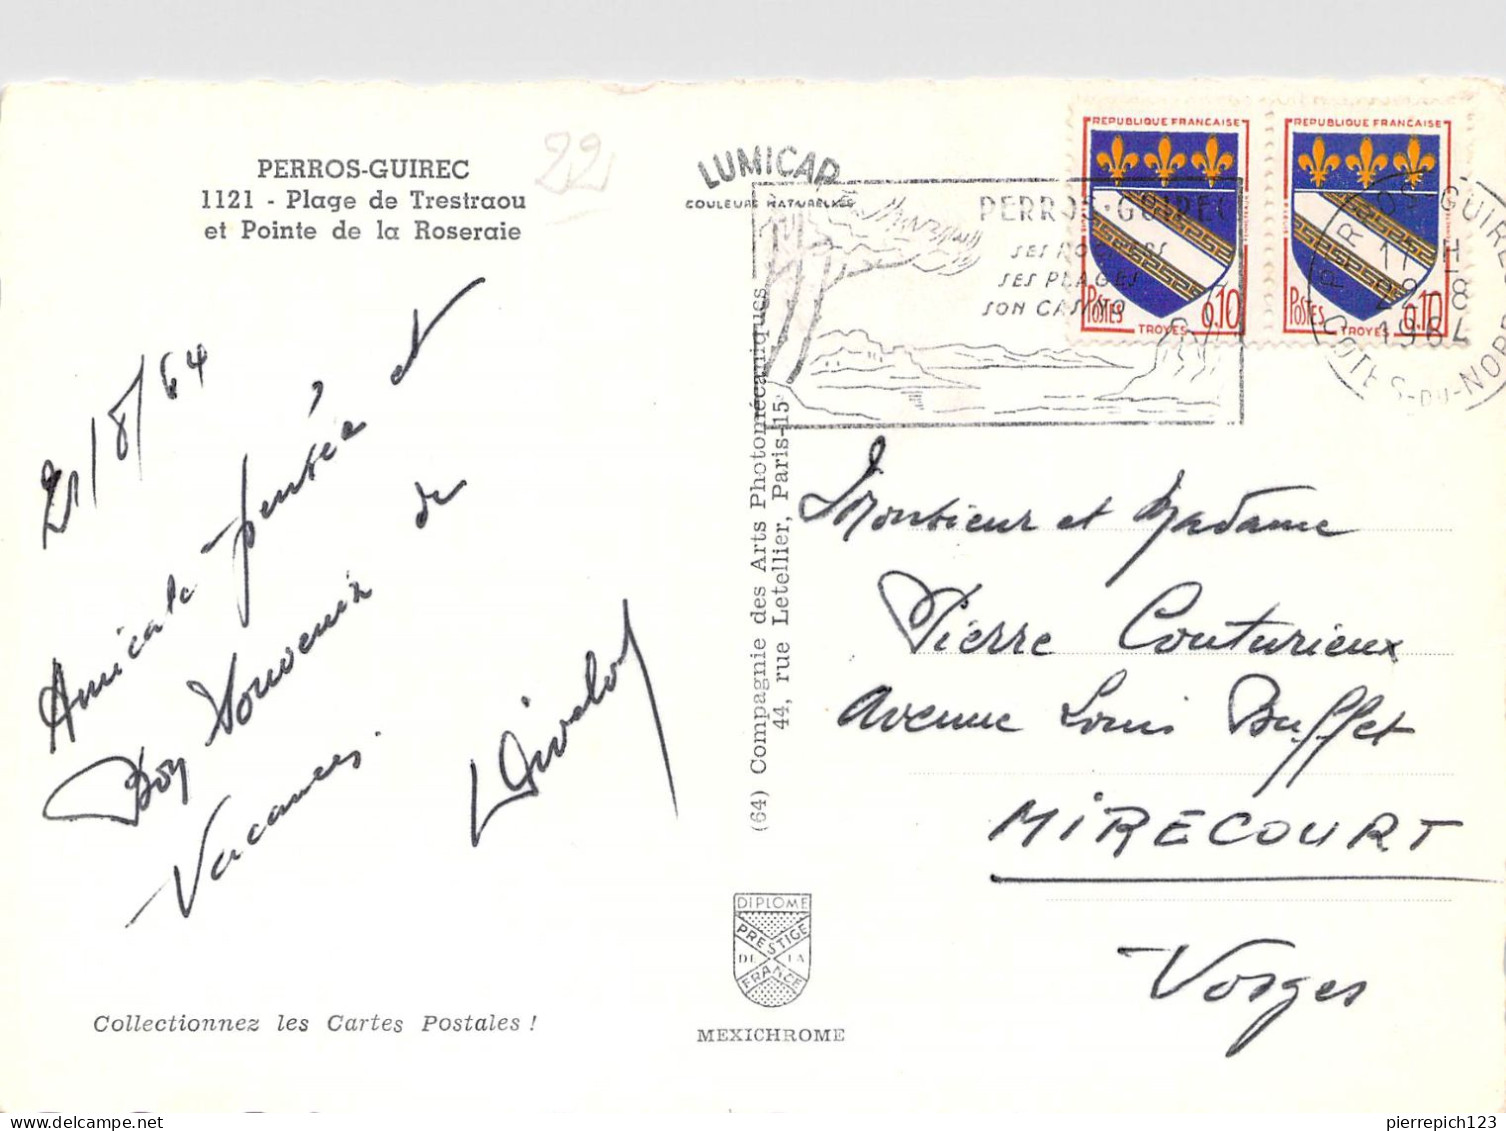 PERROS-GUIREC
1121 - Plage de Trestraou
et Pointe de la Roseraie
22
LUMICAP
COULEURS NATURELLES
PERROS-GUIREC
SES ROCHERS
SES PLAGES
SON CASINO
REPUBLIQUE FRANÇAISE
POSTES
0,10
TROYES
REPUBLIQUE FRANÇAISE
POSTES
0,10
TROYES
PERROS-GUIREC
17 H
22-8
1964
COTES-DU-NORD
21/8/64
Amicale pensée et
Bon Souvenir de
Vacances.
(64) Compagnie des Arts Photomécaniques
44, rue Letellier, Paris-15e
Monsieur et Madame
Pierre Couturieux
Avenue Louis Buffet
MIRECOURT
Vosges
DIPLOME
PRESTIGE
DE LA
FRANCE
MEXICHROME
Collectionnez les Cartes Postales !
pierrepich123